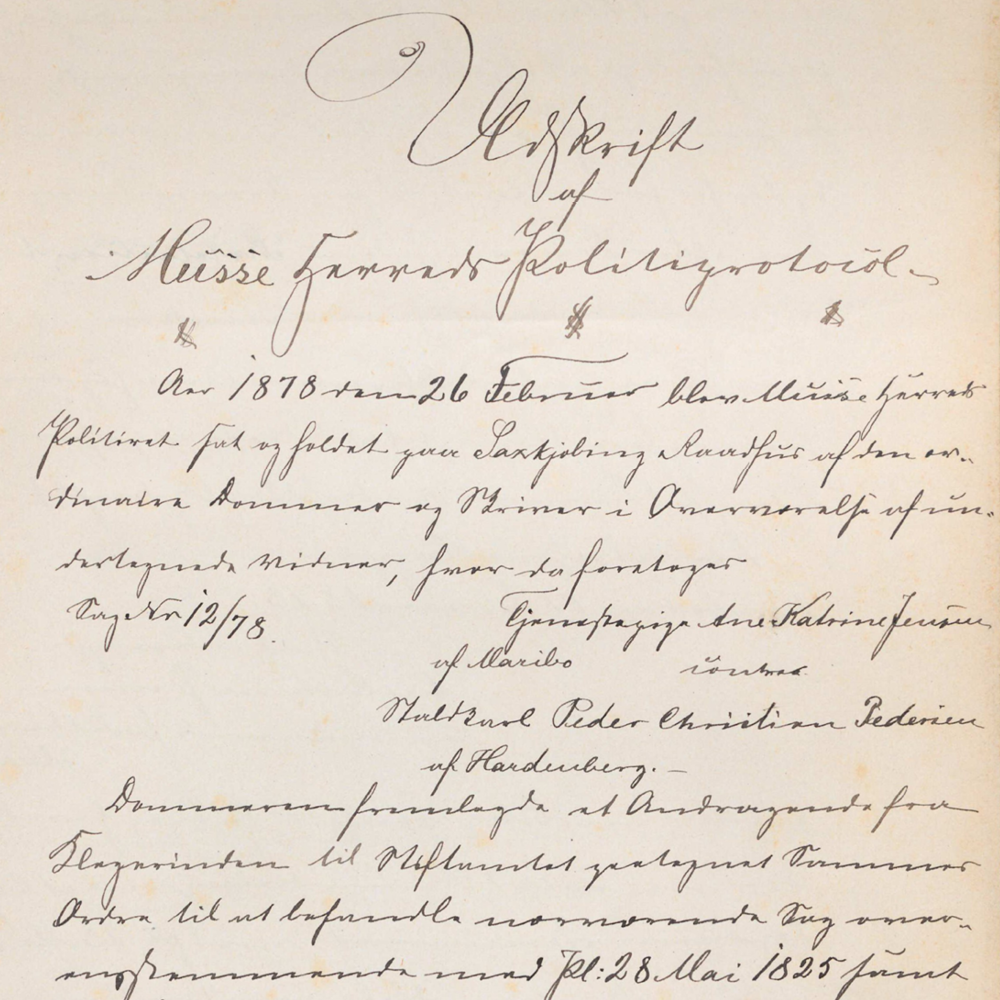 Udskrift
af
Musse Herreds Politiprotocol.
Aar 1878 den 26 Februar blev Musse Herreds
Politiret sat og holdet paa Saxkjøbing Raadhus af den or-
dinaire Dommer og Skriver i Overværelse af un-
dertegnede Vidner, hvor da foretoges
Sag No 12/78. Tjenestepige Ane Katrine Jensen
af Maribo contra
Staldkarl Peder Christian Pedersen
af Hardenberg. –
Dommeren fremlagde et Andragende fra
Klagerinden til Stiftamtet paategnet Sammes
Ordre til at behandle nærværende Sag over-
ensstemmende med Pl: 28 Mai 1825 samt